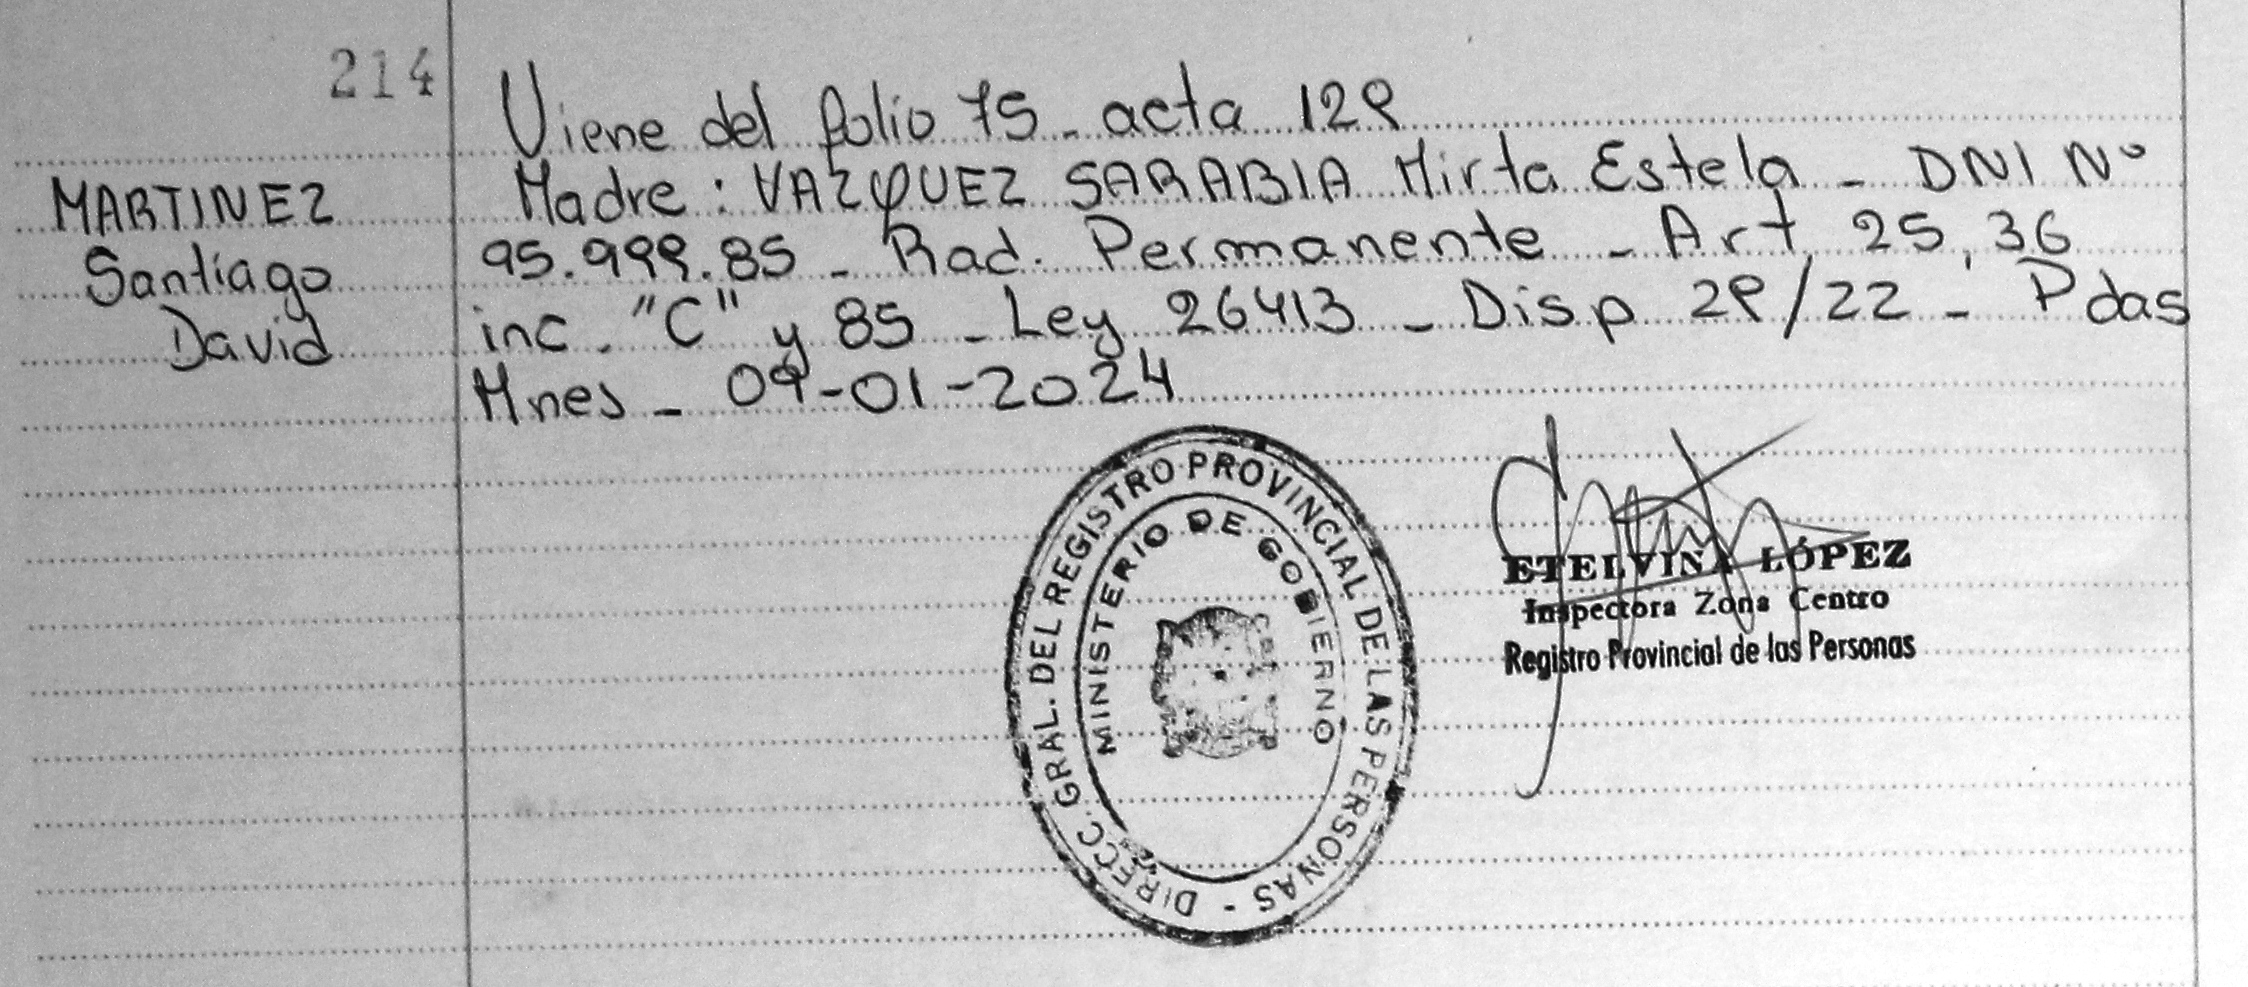 214
Viene del folio 75 - acta 129
MARTINEZ
Santiago
David
Madre: VAZQUEZ SARABIA Mirta Estela - DNI Nº
95.999.85 - Rad. Permanente - Art. 25, 36
inc. "C" y 85 - Ley 26413 - Disp 29/22 - Pdas
Mnes - 09-01-2024
DIRECC. GRAL. DEL REGISTRO PROVINCIAL DE LAS PERSONAS -
MINISTERIO DE GOBIERNO
ETELVINA LÓPEZ
Inspectora Zona Centro
Registro Provincial de las Personas